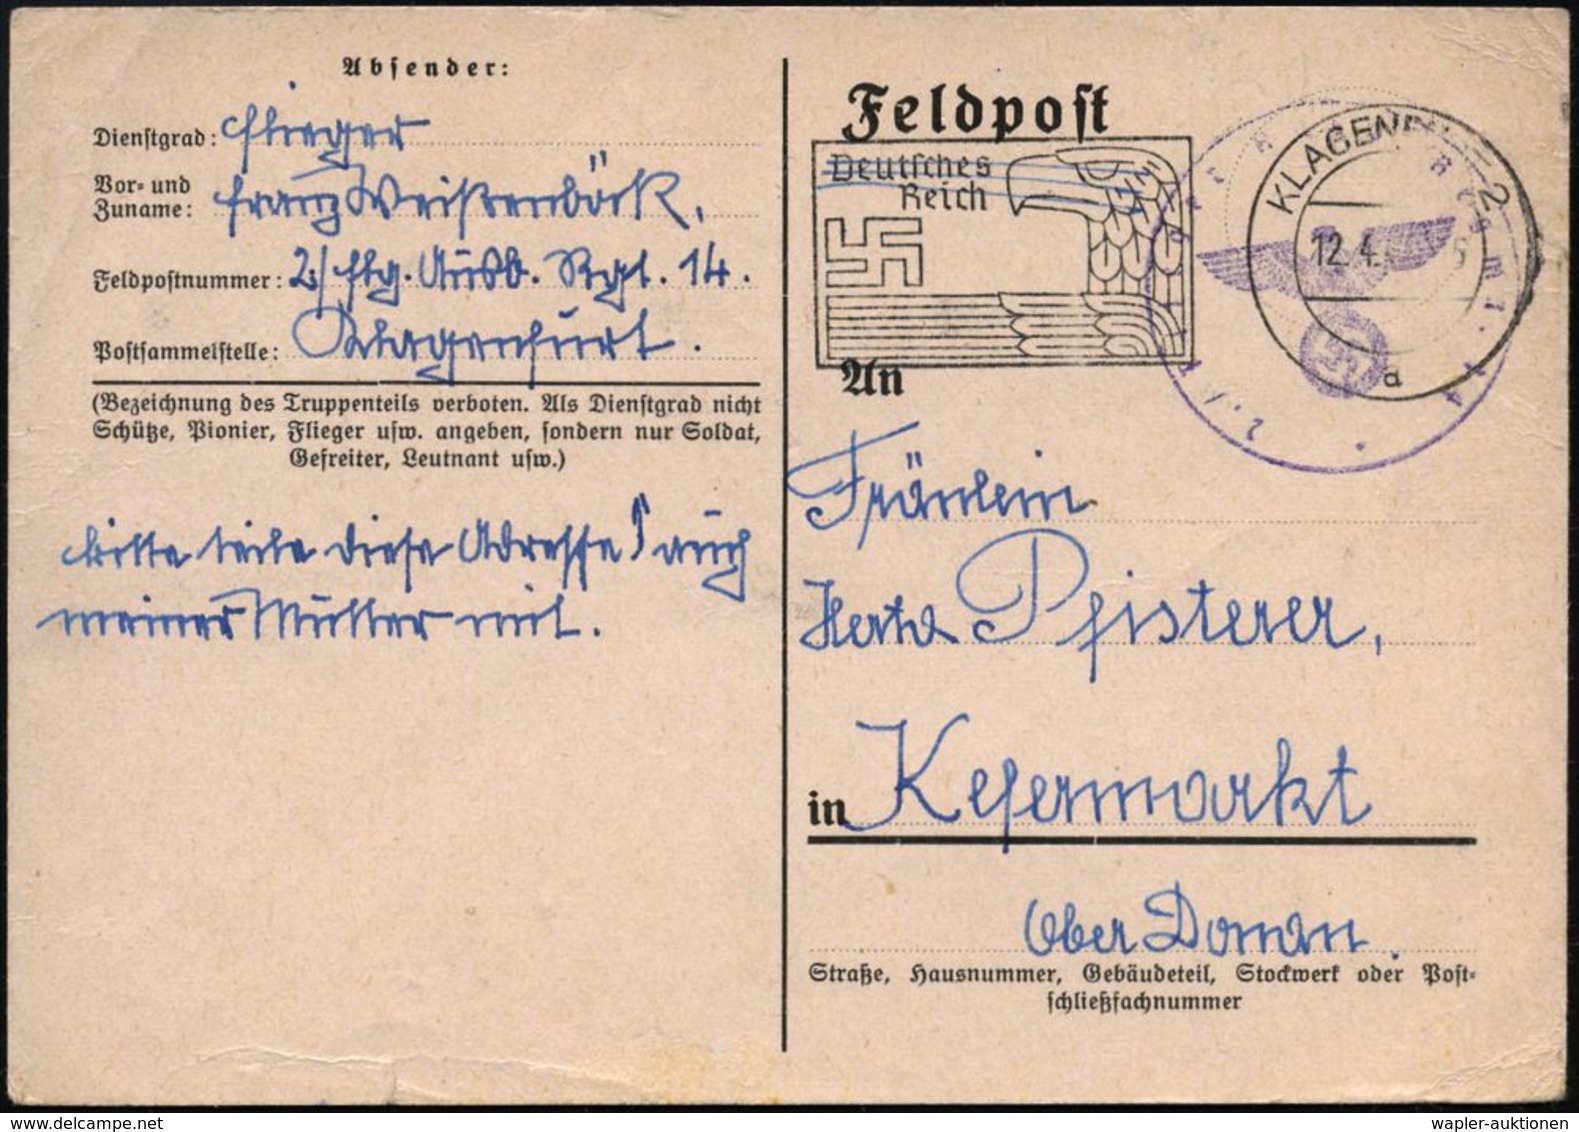 Absender:
Dienstgrad: Flieger
Vor- und Zuname: Franz Weißenböck,
Feldpostnummer: 2./Flg. Ausb. Rgt. 14.
Postsammelstelle: Klagenfurt.
(Bezeichnung des Truppenteils verboten. Als Dienstgrad nicht
Schütze, Pionier, Flieger usw. angeben, sondern nur Soldat,
Gefreiter, Leutnant usw.)
bitte teile diese Adresse auch
meiner Mutter mit.
Feldpost
Deutsches
Reich
KLAGENFU 2
12.4.
a
2./
Rgmt. 14
An
Fräulein
Herta Pfisterer,
in Kefermarkt
Ober Donau.
Straße, Hausnummer, Gebäudeteil, Stockwerk oder Post-
schließfachnummer
wapler-auktionen